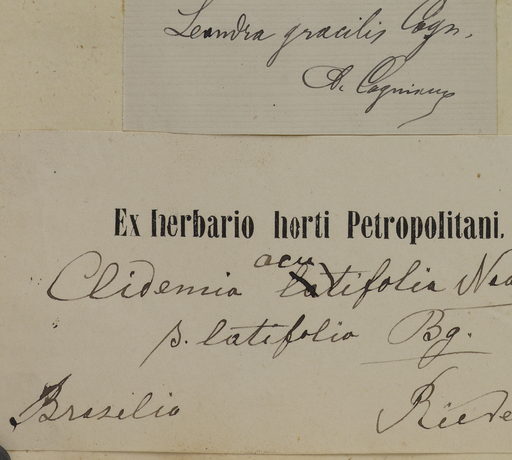 Leandra gracilis Cogn.
A. Cogniaux
Ex herbario horti Petropolitani.
acu
Clidemia latifolia Nau
β. latifolia Bg.
Brasilia Riede